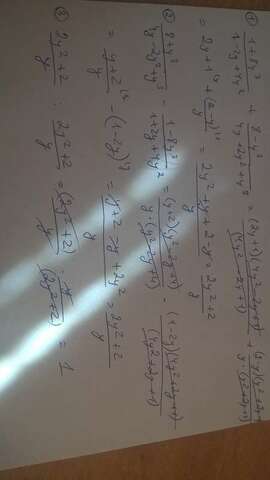 ① (1+8y³)/(1-2y+4y²) + (8-y³)/(4y+2y²+y³) = ((2y+1)(4y²-2y+1))/(4y²-2y+1) +
= 2y+1 + (2-y)/y = (2y²+y+2-y)/y = (2y²+2)/y
② (8+y³)/(4y-2y²+y³) - (1-8y³)/(1+2y+4y²) = ((y+2)(y²-2y+4))/(y·(y²-2y+4)) - ((1-2y)(4y²+2y+1))/(4y²+2y+1)
= (y+2)/y - (1-2y) = (y+2-y+2y²)/y = (2y²+2)/y
③ (2y²+2)/y : (2y²+2)/y = (2y²+2)/y · y/(2y²+2) = 1